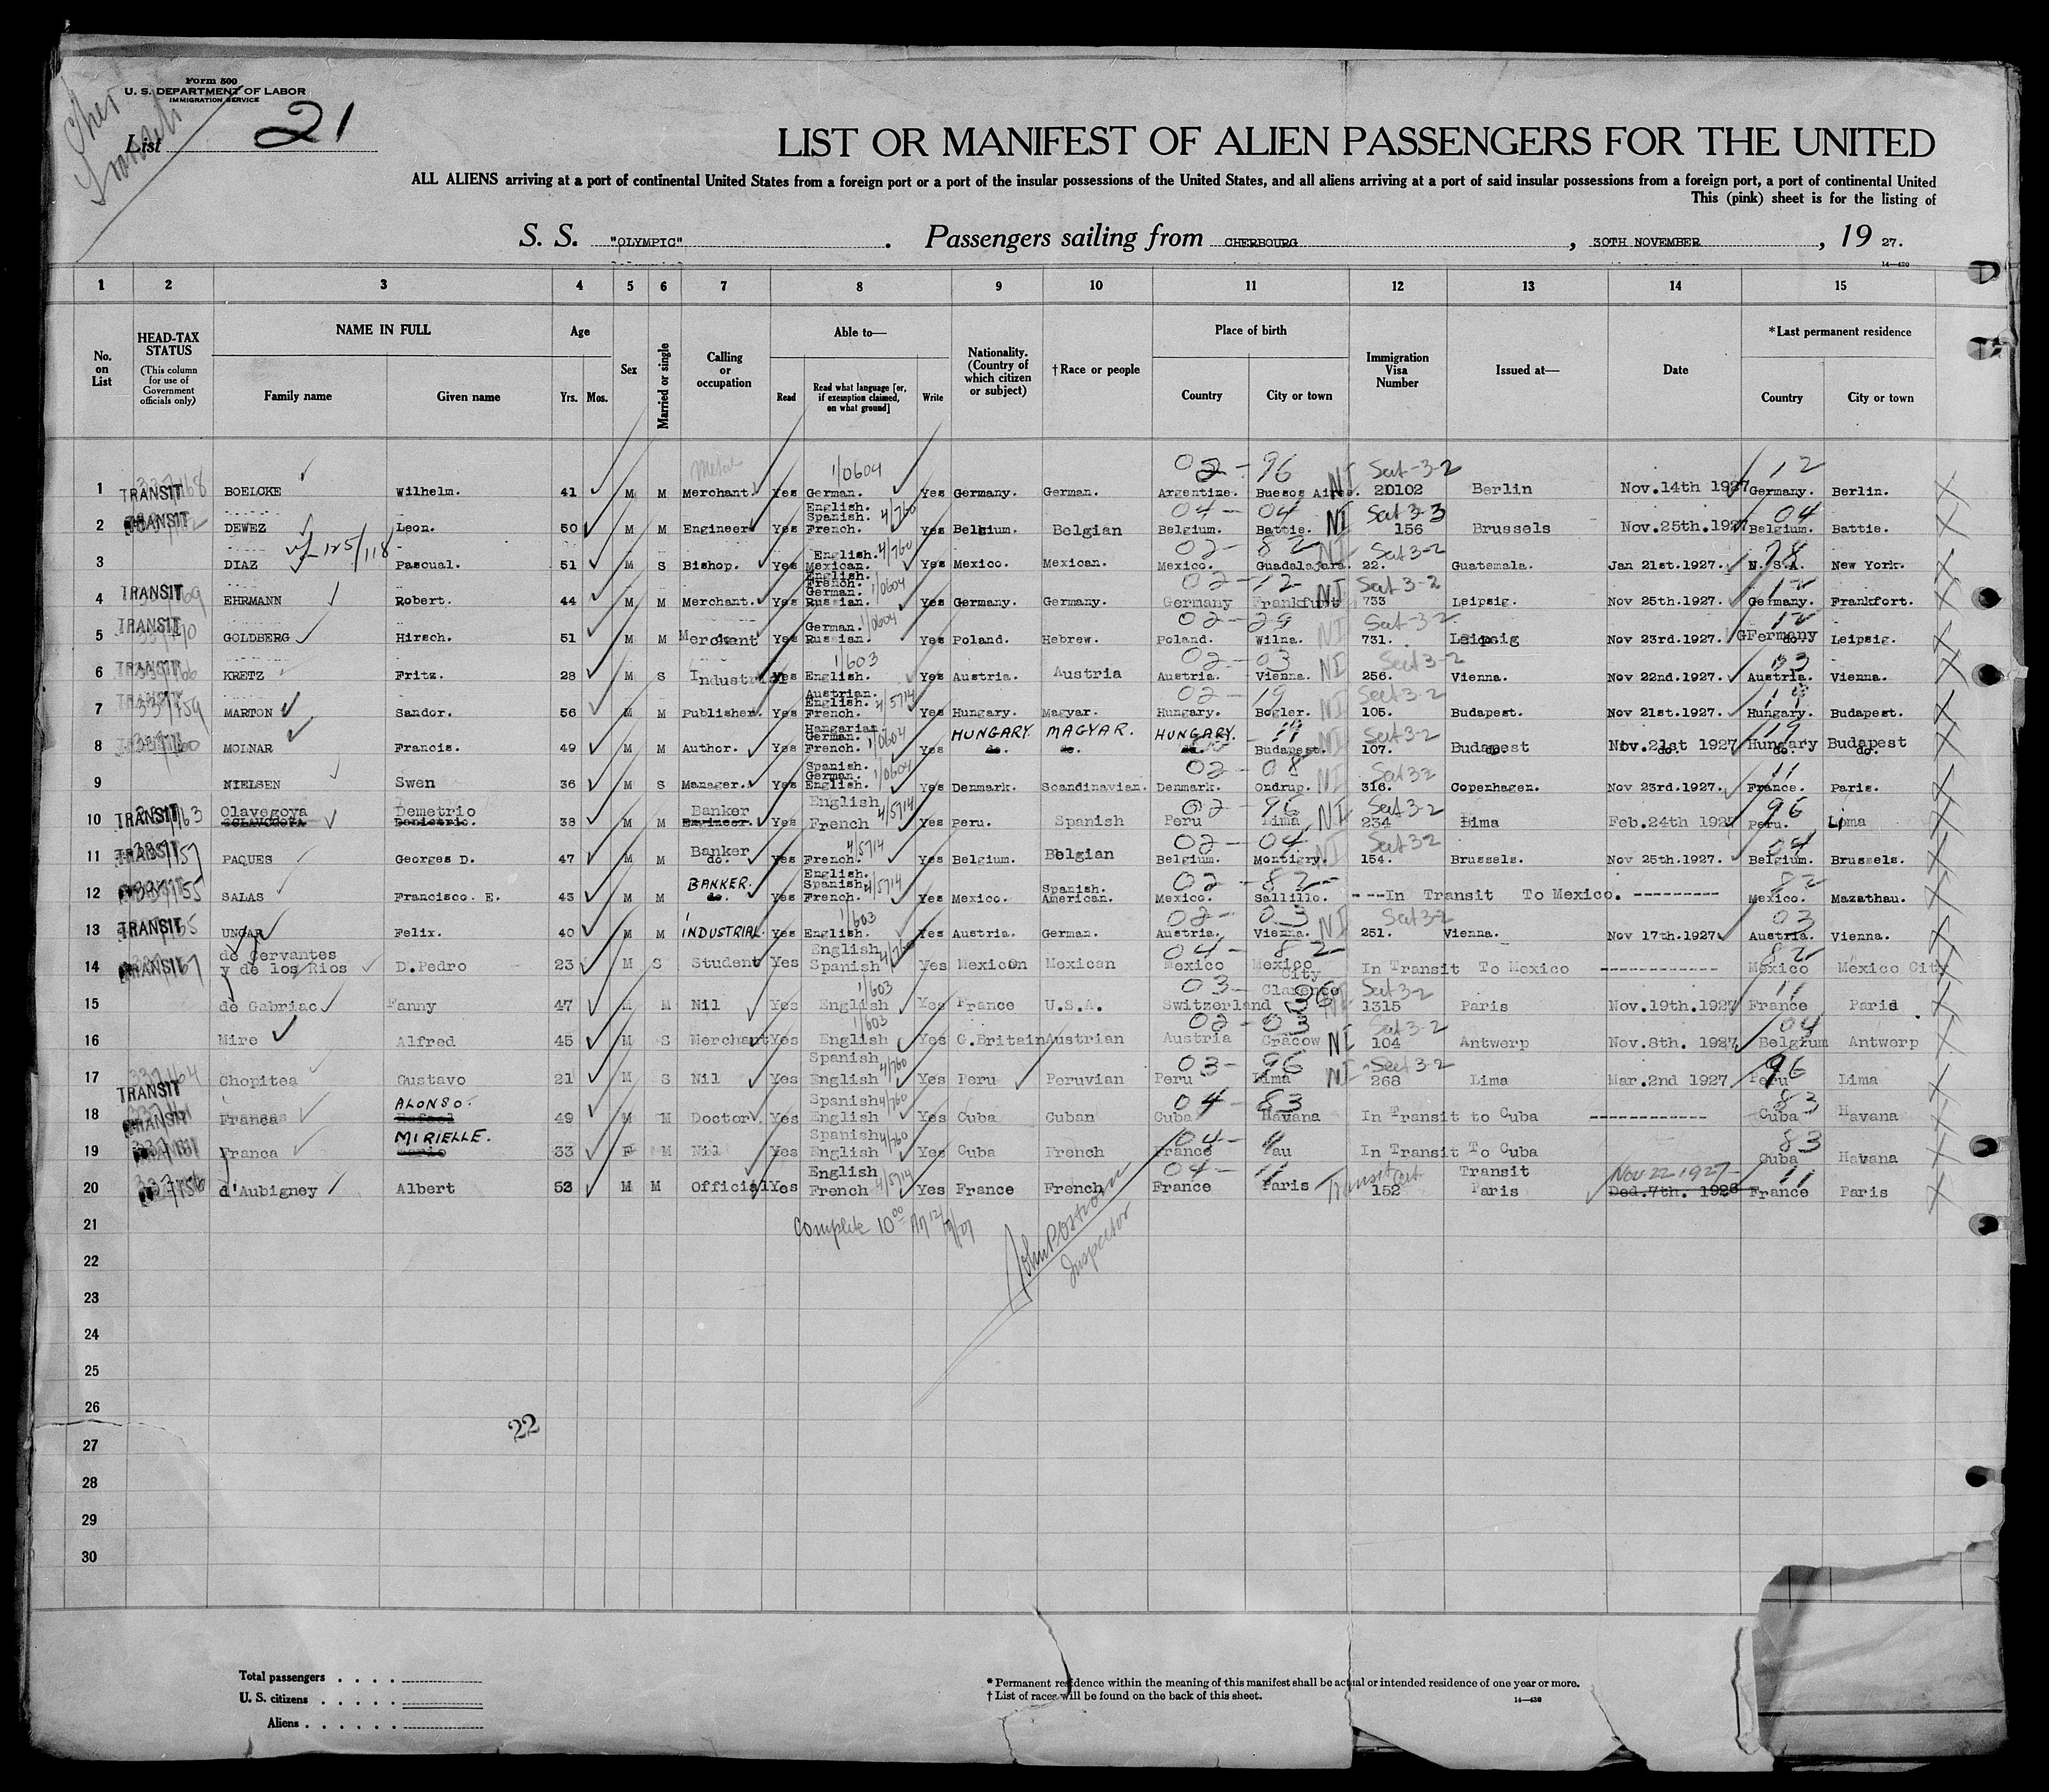 Form 500
U. S. DEPARTMENT OF LABOR
IMMIGRATION SERVICE
List 21
LIST OR MANIFEST OF ALIEN PASSENGERS FOR THE UNITED
ALL ALIENS arriving at a port of continental United States from a foreign port or a port of the insular possessions of the United States, and all aliens arriving at a port of said insular possessions from a foreign port, a port of continental United
This (pink) sheet is for the listing of
S. S. "OLYMPIC". Passengers sailing from CHERBOURG, 30TH NOVEMBER, 19 27.
14—430
1 2 3 4 5 6 7 8 9 10 11 12 13 14 15
No. on List
HEAD-TAX STATUS (This column for use of Government officials only)
NAME IN FULL Family name Given name
Age Yrs. Mos.
Sex
Married or single
Calling or occupation
Able to— Read Read what language [or, if exemption claimed, on what ground] Write
Nationality. (Country of which citizen or subject)
† Race or people
Place of birth Country City or town
Immigration Visa Number
Issued at—
Date
*Last permanent residence Country City or town
1 TRANSIT BOELCKE Wilhelm. 41 M M Merchant. Yes German. 1/0604 Yes Germany. German. 02-96 Argentine. Buenos Aires. NI Sect-3-2 20102 Berlin Nov.14th 1927 12 Germany. Berlin.
2 TRANSIT DEWEZ Leon. 50 M M Engineer Yes English. Spanish. French. 4/760 Yes Belgium. Belgian 04-04 Belgium. Battie. NI Sect 3-3 156 Brussels Nov.25th.1927 04 Belgium. Battie.
3 DIAZ Pascual. 51 M S Bishop. Yes English. Mexican. 4/760 Yes Mexico. Mexican. 02-82 Mexico. Guadalajara. NI Sect 3-2 22. Guatemala. Jan 21st.1927. N.S.A. New York.
4 TRANSIT EHRMANN Robert. 44 M M Merchant. Yes English. French. German. Russian. 1/0604 Yes Germany. Germany. 02-12 Germany Frankfurt NI Sect 3-2 733 Leipsig. Nov 25th.1927. 12 Germany. Frankfort.
5 TRANSIT GOLDBERG Hirsch. 51 M M Merchant Yes German. Russian. 1/0604 Yes Poland. Hebrew. 02-29 Poland. Wilna. NI Sect-3-2 731. Leipsig Nov 23rd.1927. 12 Germany Leipsig.
6 TRANSIT KRETZ Fritz. 28 M S Industrial Yes English. 1/603 Yes Austria. Austria 02-03 Austria. Vienna. NI Sect 3-2 256. Vienna. Nov 22nd.1927. 03 Austria. Vienna.
7 TRANSIT MARTON Sandor. 56 M M Publisher. Yes Austrian. English. French. 4/5714 Yes Hungary. Magyar. 02-19 Hungary. Bogler. NI Sect 3-2 105. Budapest. Nov 21st.1927. 19 Hungary. Budapest.
8 TRANSIT MOLNAR Francis. 49 M M Author. Yes Hungarian. German. French. 1/0604 Yes HUNGARY MAGYAR. HUNGARY. 19 Budapest. NI Sect 3-2 107. Budapest Nov.21st 1927 19 Hungary Budapest
9 NIELSEN Swen 36 M S Manager. Yes Spanish. German. English. 1/0604 Yes Denmark. Scandinavian. 02-08 Denmark. Ondrup. NI Sect 3-2 316. Copenhagen. Nov 23rd.1927. 11 France. Paris.
10 TRANSIT Olavegoya Demetrio 38 M M Banker Engineer. Yes English French 4/5714 Yes Peru. Spanish 02-96 Peru Lima NI Sect 3-2 234 Lima Feb.24th 1927 96 Peru. Lima
11 TRANSIT PAQUES Georges D. 47 M M Banker do. Yes French. 4/5714 Yes Belgium. Belgian 02-04 Belgium. Montigry. NI Sect 3-2 154. Brussels. Nov 25th.1927. 04 Belgium. Brussels.
12 SALAS Francisco. E. 43 M M BANKER. do. Yes English. Spanish. French. 4/5714 Yes Mexico. Spanish. American. 02-82 Mexico. Sallillo. ---In Transit To Mexico. --------- 82 Mexico. Mazathau.
13 TRANSIT UNGAR Felix. 40 M M INDUSTRIAL. Yes English. 1/603 Yes Austria. German. 02-03 Austria. Vienna. NI Sect 3-2 251. Vienna. Nov 17th.1927 03 Austria. Vienna.
14 TRANSIT de Cervantes y de los Rios D.Pedro 23 M S Student Yes English Spanish 4/760 Yes Mexicon Mexican 04-82 Mexico Mexico City In Transit To Mexico ------------ 82 Mexico Mexico City
15 de Gabriac Fanny 47 M M Nil Yes English 1/603 Yes France U.S.A. 03- Switzerland Clarence Sect 3-2 1315 Paris Nov.19th.1927 11 France Paris
16 Mire Alfred 45 M S Merchant Yes English 1/603 Yes G.Britain Austrian 02-03 Austria Cracow NI Sect 3-2 104 Antwerp Nov.8th. 1927 04 Belgium Antwerp
17 TRANSIT Chopitea Gustavo 21 M S Nil Yes Spanish English 4/760 Yes Peru Peruvian 03-96 Peru Lima NI Sect 3-2 268 Lima Mar.2nd 1927 96 Peru Lima
18 TRANSIT Franca ALONSO. Rafael 49 M M Doctor Yes Spanish English 4/760 Yes Cuba Cuban 04-83 Cuba Havana In Transit to Cuba ------------ 83 Cuba Havana
19 Franca MIRIELLE. 33 F M Nil Yes Spanish English 4/760 Yes Cuba French 04- France Pau In Transit To Cuba 83 Cuba Havana
20 d'Aubigney Albert 53 M M Official Yes English French 4/5714 Yes France French 04-11 France Paris Transit Cert. 152 Transit Paris Nov 22-1927- Ded.7th. 1926 11 France Paris
21 Complete 10⁰⁰ AM
Inspector
22
23
24
25
26
22
27
28
29
30
Total passengers
U. S. citizens
Aliens
* Permanent residence within the meaning of this manifest shall be actual or intended residence of one year or more.
† List of races will be found on the back of this sheet.
14—430